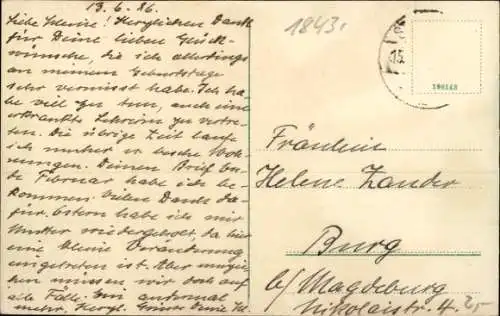 13.6.26.
Liebe Helene! Herzlichen Dank
für Deine lieben Glück-
wünsche, die ich allerdings
an meinem Geburtstage
sehr vermisst habe. Ich ha-
be viel zu tun, auch eine
erkrankte Lehrerin zu vertre-
ten. Die übrige Zeit laufe
ich umher u. besehe Woh-
nungen. Deinen Brief En-
de Februar habe ich be-
kommen. Vielen Dank da-
für. Ostern habe ich mir
Mutter wiedergeholt, da hier
eine kleine Veränderung
eingetreten ist. Aber umzie-
hen müssen wir doch auf
alle Fälle. Ein andermal
mehr. Herzl. Grüsse Deine
1843.
15
190143
Fräulein
Helene Zander
Burg
b/ Magdeburg
Nikolaistr. 4.